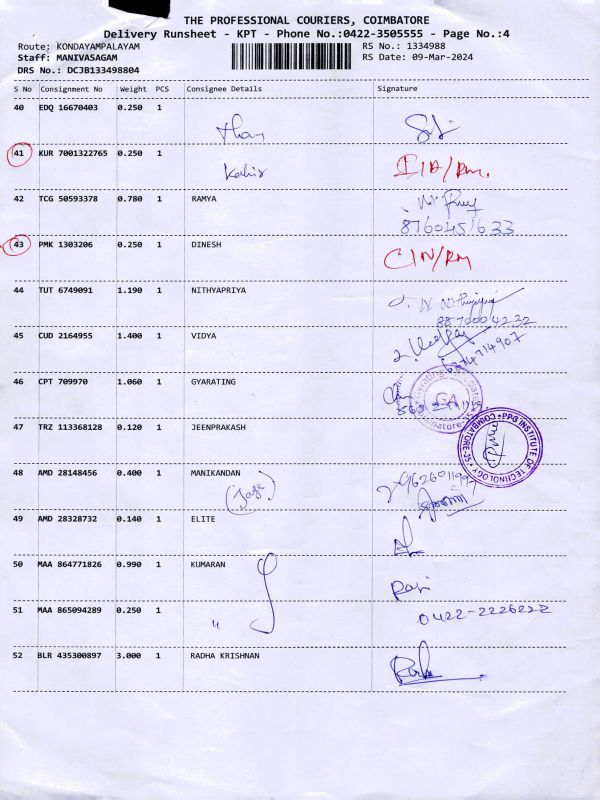 THE PROFESSIONAL COURIERS, COIMBATORE
Delivery Runsheet - KPT - Phone No.:0422-3505555 - Page No.:4
Route: KONDAYAMPALAYAM RS No.: 1334988
Staff: MANIVASAGAM RS Date: 09-Mar-2024
DRS No.: DCJB133498804
S No Consignment No Weight PCS Consignee Details Signature
40 EDQ 16670403 0.250 1
41 KUR 7001322765 0.250 1
42 TCG 50593378 0.780 1 RAMYA
8760451633
43 PMK 1303206 0.250 1 DINESH
CIN/RM
44 TUT 6749091 1.190 1 NITHYAPRIYA
45 CUD 2164955 1.400 1 VIDYA
6374714907
46 CPT 709970 1.060 1 GYARATING
GA
47 TRZ 113368128 0.120 1 JEENPRAKASH
PPG INSTITUTE OF TECHNOLOGY * COIMBATORE-35 *
48 AMD 28148456 0.400 1 MANIKANDAN
49 AMD 28328732 0.140 1 ELITE
50 MAA 864771826 0.990 1 KUMARAN
51 MAA 865094289 0.250 1 "
0422-2226222
52 BLR 435300897 3.000 1 RADHA KRISHNAN